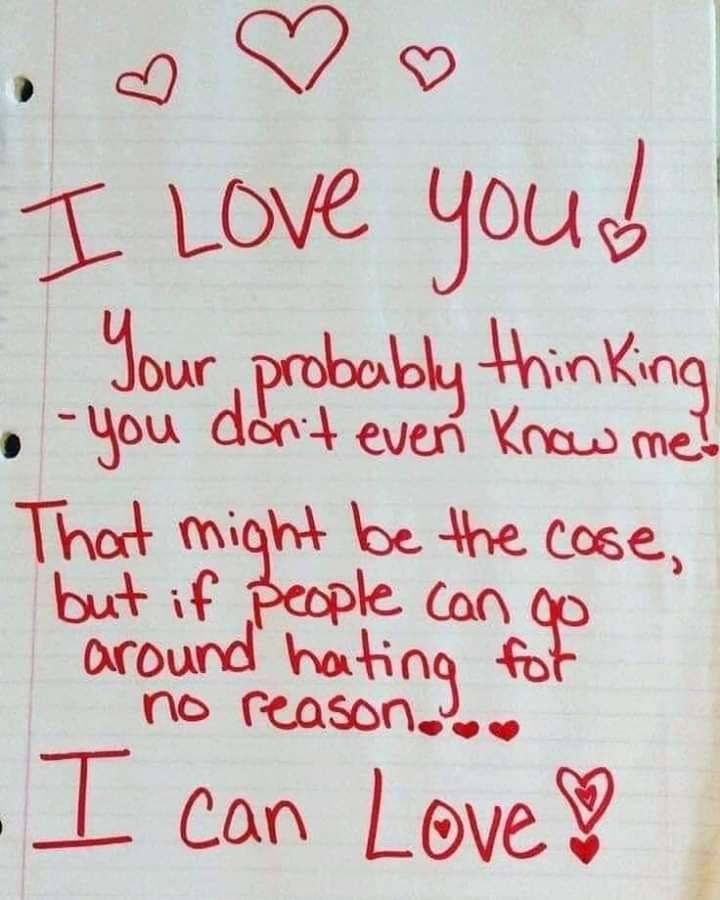 I Love you!
Your probably thinking
-you don't even know me!
That might be the case,
but if people can go
around hating for
no reason...
I can Love!